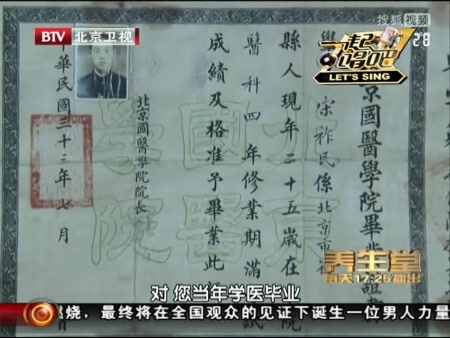 BTV 北京卫视
搜狐视频
一起唱吧
LET'S SING
京國醫學院畢
宗祚民係北京市
縣人現年二十五歲在
院
醫科四年修業期滿
成績及格准予畢業此
北京國醫學院院長
華民國三十二年七月
养生堂
每天17:25播出
对 您当年学医毕业
燃烧，最终将在全国观众的见证下诞生一位男人力量